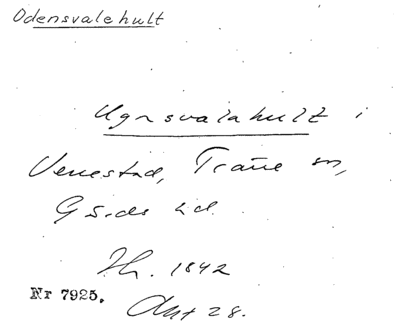 Odensvalehult
Ugnsvalahult i
Venestad, Träne sn,
Gärds hd.
Hr. 1842
Nr 7925.
Akt 28.